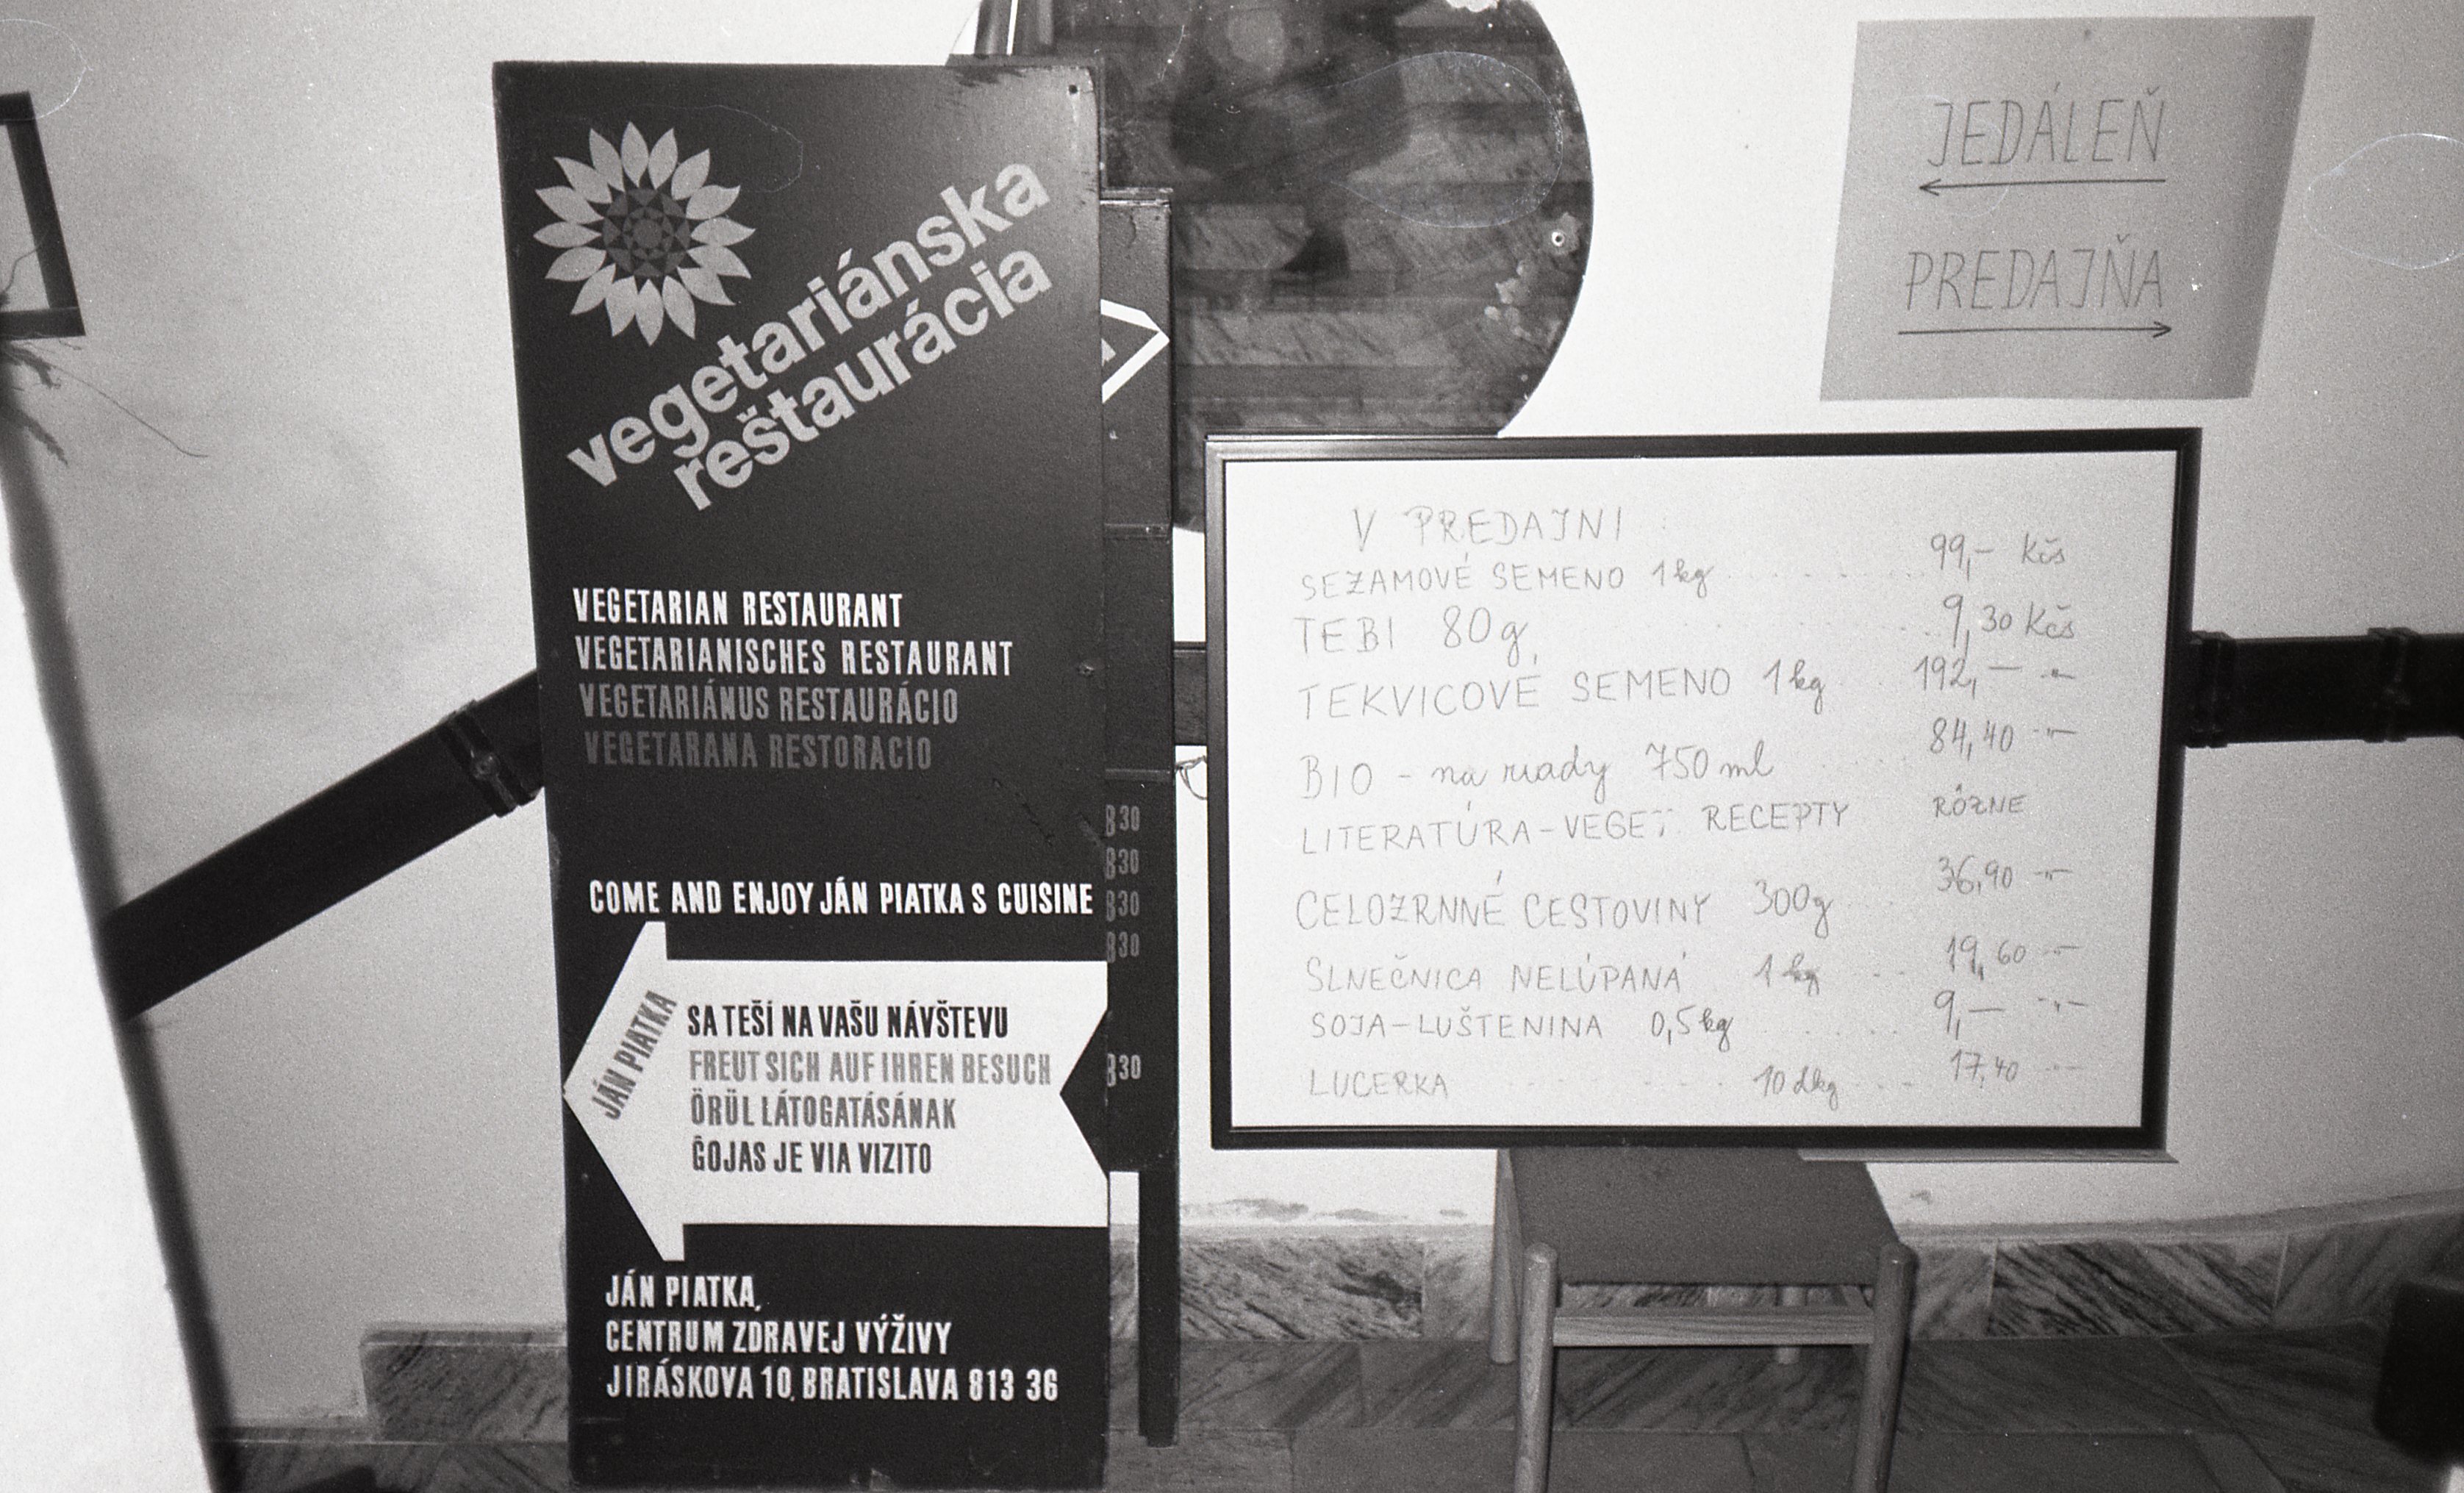 vegetariánska
reštaurácia
VEGETARIAN RESTAURANT
VEGETARIANISCHES RESTAURANT
VEGETARIÁNUS RESTAURÁCIO
VEGETARANA RESTORACIO
COME AND ENJOY JÁN PIATKA S CUISINE
JÁN PIATKA
SA TEŠÍ NA VAŠU NÁVŠTEVU
FREUT SICH AUF IHREN BESUCH
ÖRÜL LÁTOGATÁSÁNAK
ĜOJAS JE VIA VIZITO
JÁN PIATKA,
CENTRUM ZDRAVEJ VÝŽIVY
JIRÁSKOVA 10, BRATISLAVA 813 36
30
30
30
30
30
JEDÁLEŇ
PREDAJŇA
V PREDAJNI
SEZAMOVÉ SEMENO 1kg 99,- Kčs
TEBI 80g 9,30 Kčs
TEKVICOVÉ SEMENO 1kg 192,- -"-
BIO - na riady 750 ml 84,40 -"-
LITERATÚRA - VEGET. RECEPTY RÔZNE
CELOZRNNÉ CESTOVINY 300g 36,90 -"-
SLNEČNICA NELÚPANÁ 1kg 19,60 -"-
SOJA - LUŠTENINA 0,5kg 9,- -"-
LUCERKA 10 dkg 17,40 -"-